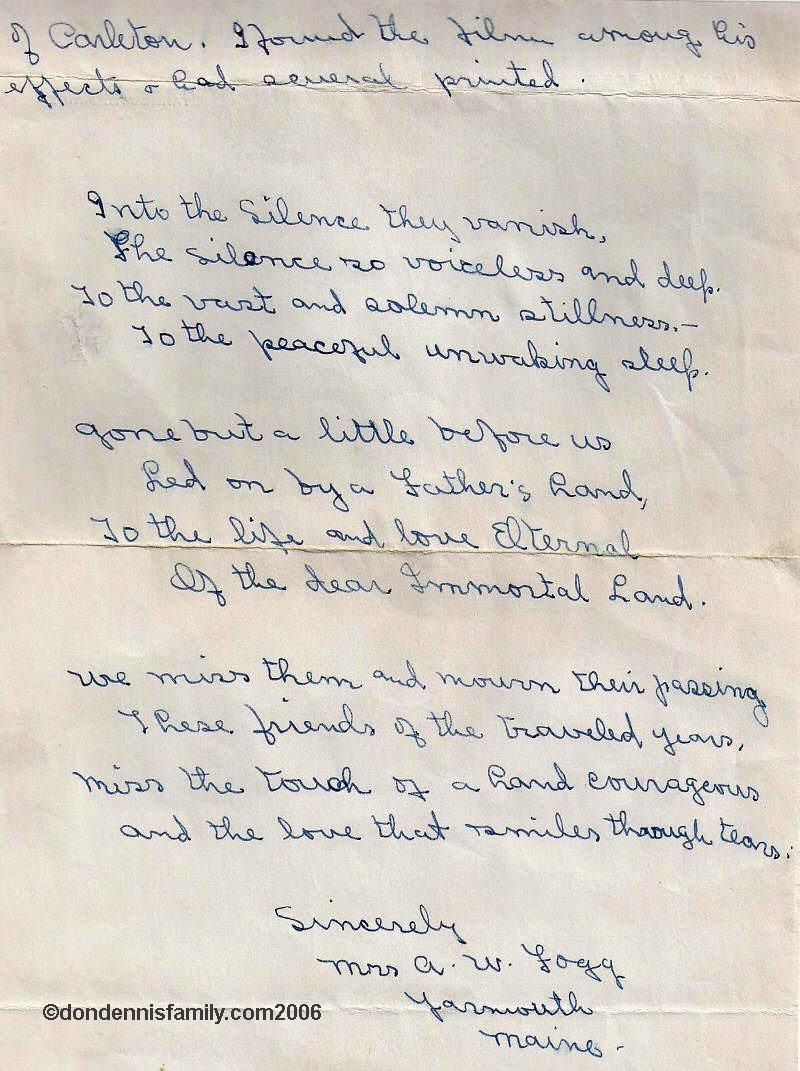 of Carleton. I found the film among his
effects & had several printed.
Into the Silence they vanish,
The silence so voiceless and deep.
To the vast and solemn stillness.—
To the peaceful unwaking sleep.
gone but a little before us
Led on by a Father's hand,
To the life and love Elternal
Of the dear Immortal Land.
we miss them and mourn their passing
These friends of the traveled years,
miss the touch of a hand courageous
and the love that smiles through tears.
Sincerely
Mrs A. W. Fogg
Yarmouth
Maine -
©dondennisfamily.com2006